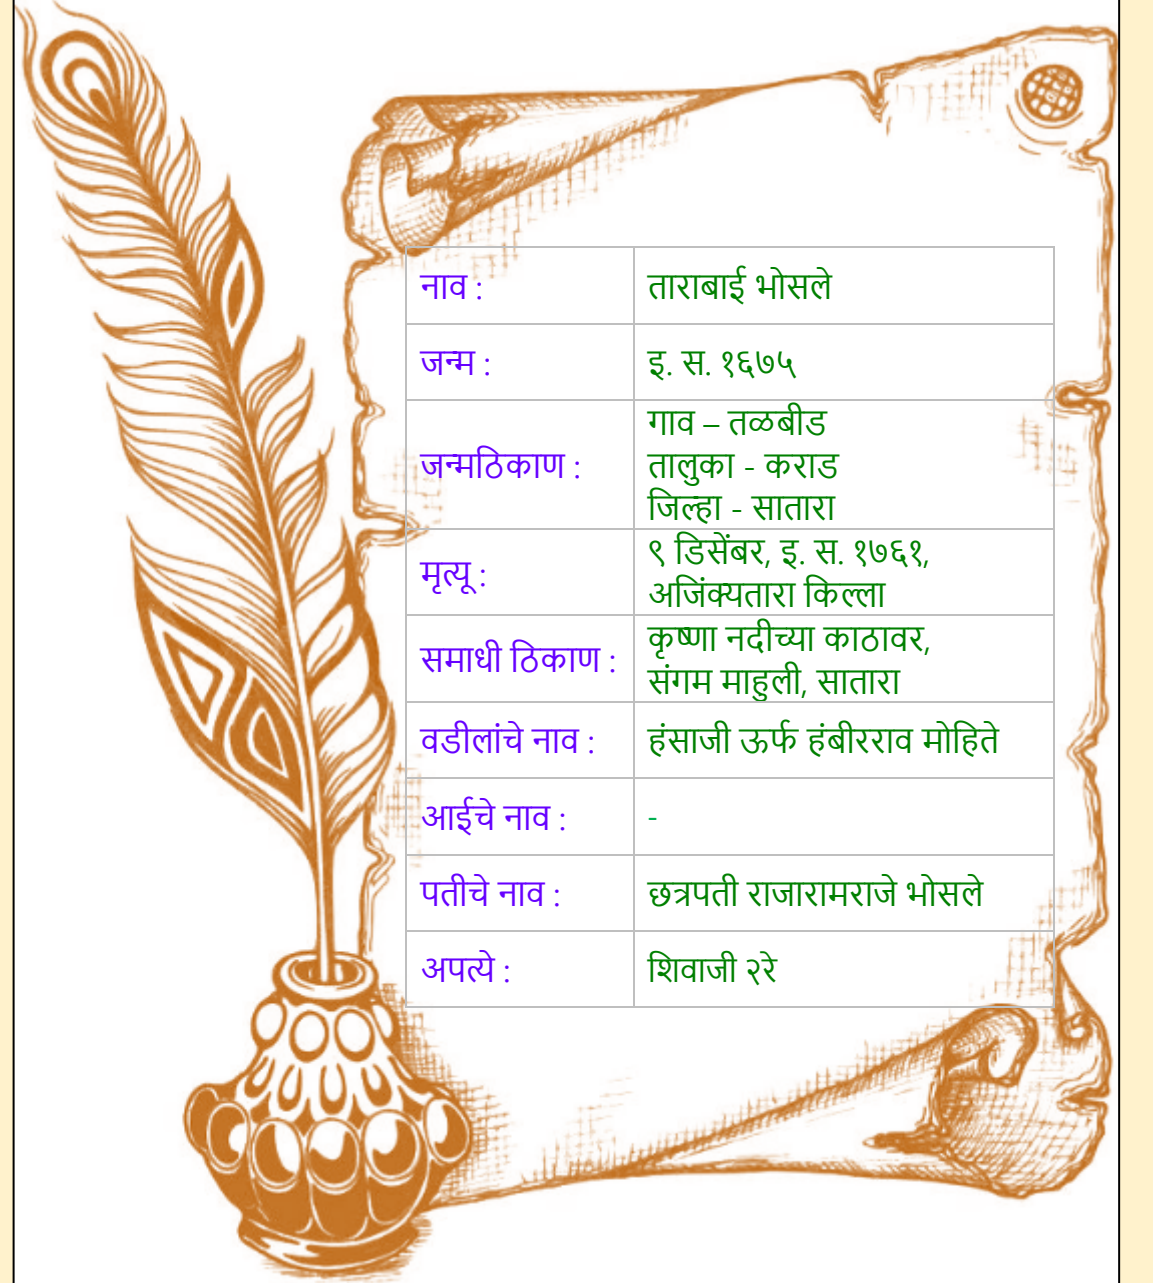 नाव :
ताराबाई भोसले
जन्म :
इ. स. १६७५
जन्मठिकाण :
गाव – तळबीड
तालुका - कराड
जिल्हा - सातारा
मृत्यू :
९ डिसेंबर, इ. स. १७६१,
अजिंक्यतारा किल्ला
समाधी ठिकाण :
कृष्णा नदीच्या काठावर,
संगम माहुली, सातारा
वडीलांचे नाव :
हंसाजी ऊर्फ हंबीरराव मोहिते
आईचे नाव :
-
पतीचे नाव :
छत्रपती राजारामराजे भोसले
अपत्ये :
शिवाजी २रे